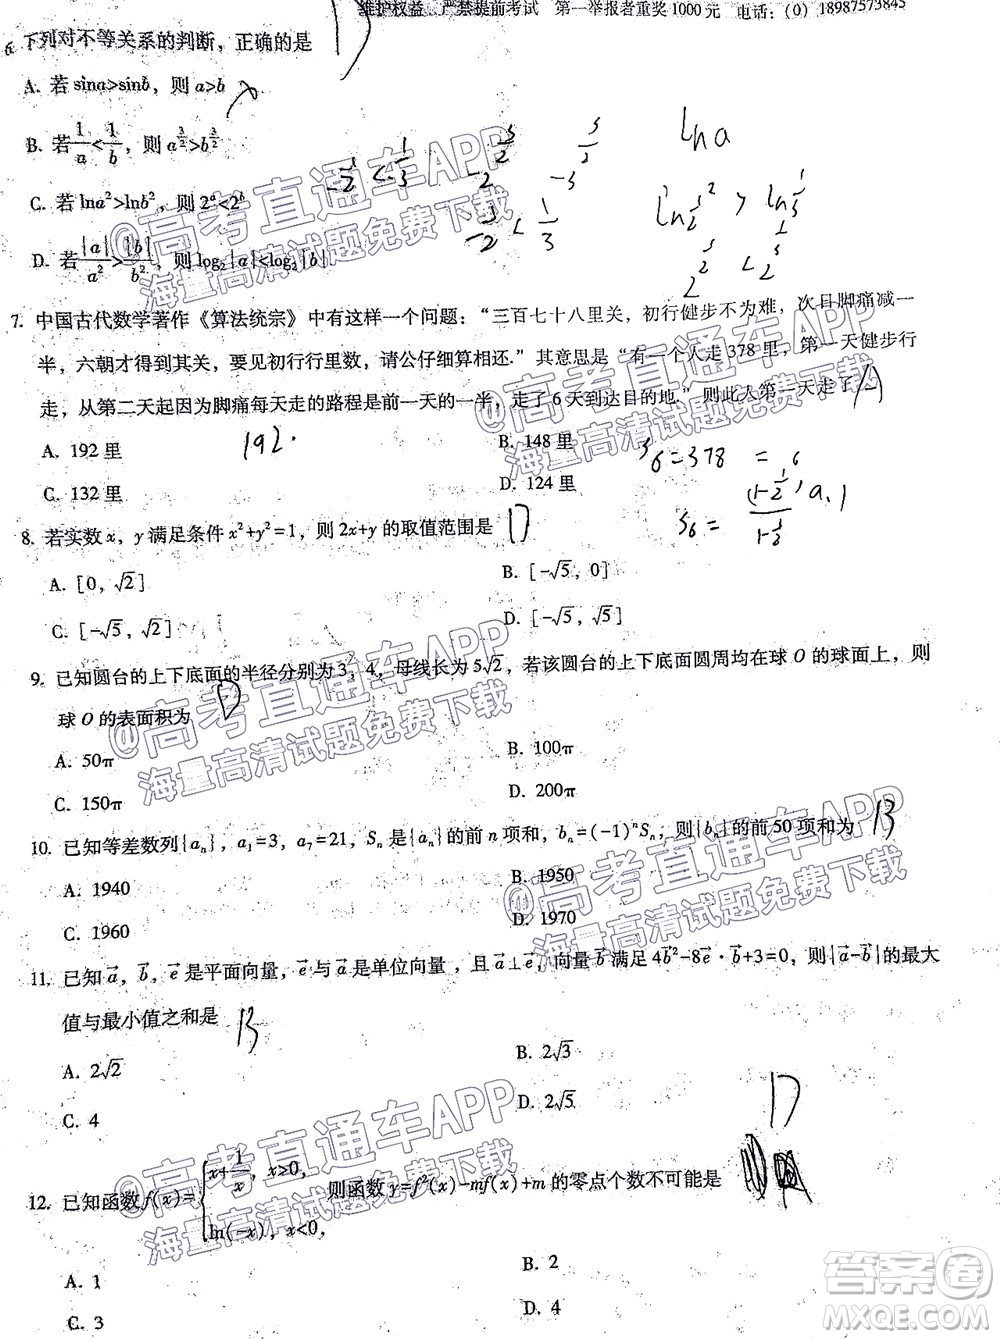 维护权益 严禁提前考试 第一举报者重奖1000元 电话：(0) 18987573845
6. 下列对不等关系的判断，正确的是 D
A. 若 sina>sinb，则 a>b
B. 若 1/a < 1/b，则 a^(3/2) > b^(3/2)
C. 若 lna²>lnb²，则 2^a<2^b
D. 若 |a|/a² > |b|/b²，则 log₂|a|<log₂|b|
lna
7. 中国古代数学著作《算法统宗》中有这样一个问题：“三百七十八里关，初行健步不为难，次日脚痛减一
半，六朝才得到其关，要见初行行里数，请公仔细算相还.”其意思是“有一个人走 378 里，第一天健步行
走，从第二天起因为脚痛每天走的路程是前一天的一半，走了 6 天到达目的地.”则此人第一天走了 A
A. 192 里
192.
B. 148 里
C. 132 里
D. 124 里
S₆=378
8. 若实数 x，y 满足条件 x²+y²=1，则 2x+y 的取值范围是 D
A. [0, √2]
B. [-√5, 0]
C. [-√5, √2]
D. [-√5, √5]
9. 已知圆台的上下底面的半径分别为 3，4，母线长为 5√2，若该圆台的上下底面圆周均在球 O 的球面上，则
球 O 的表面积为 D
A. 50π
B. 100π
C. 150π
D. 200π
10. 已知等差数列{aₙ}，a₁=3，a₇=21，Sₙ 是{aₙ}的前 n 项和，bₙ=(-1)ⁿSₙ，则{bₙ}的前 50 项和为 B
A. 1940
B. 1950
C. 1960
D. 1970
11. 已知 a⃗，b⃗，e⃗ 是平面向量，e⃗ 与 a⃗ 是单位向量，且 a⃗⊥e⃗，向量 b⃗ 满足 4b⃗²-8e⃗·b⃗+3=0，则|a⃗-b⃗|的最大
值与最小值之和是 B
A. 2√2
B. 2√3
C. 4
D. 2√5
D
12. 已知函数 f(x)={x+1/x，x>0，ln(-x)，x<0， 则函数 y=f²(x)-mf(x)+m 的零点个数不可能是
A. 1
B. 2
C. 3
D. 4
@高考直通车APP
海量高清试题免费下载
@高考直通车APP
海量高清试题免费下载
@高考直通车APP
海量高清试题免费下载
@高考直通车APP
海量高清试题免费下载
@高考直通车APP
海量高清试题免费下载
答案卷
MXQE.COM